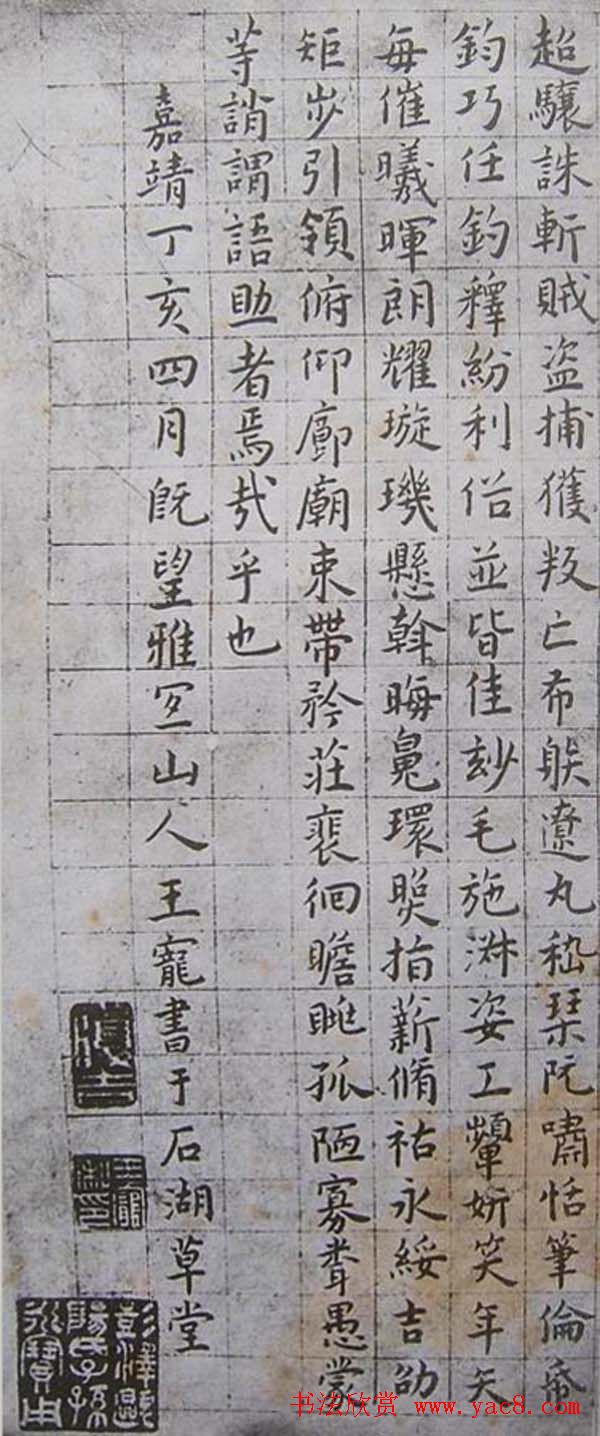 超驤誅斬賊盜捕獲叛亡布䠶遼丸嵇琹阮嘯恬筆倫帋
鈞巧任釣釋紛利俗並皆佳玅毛施淋姿工顰妍笑年矢
每催曦暉朗耀璇璣懸斡晦魄環照指薪脩祜永綏吉劭
矩步引領俯仰廊廟束帶矜莊裵徊瞻眺孤陋寡聞愚蒙
等誚謂語助者焉哉乎也
嘉靖丁亥四月既望雅宜山人王寵書于石湖草堂
书法欣赏 www.yac8.com